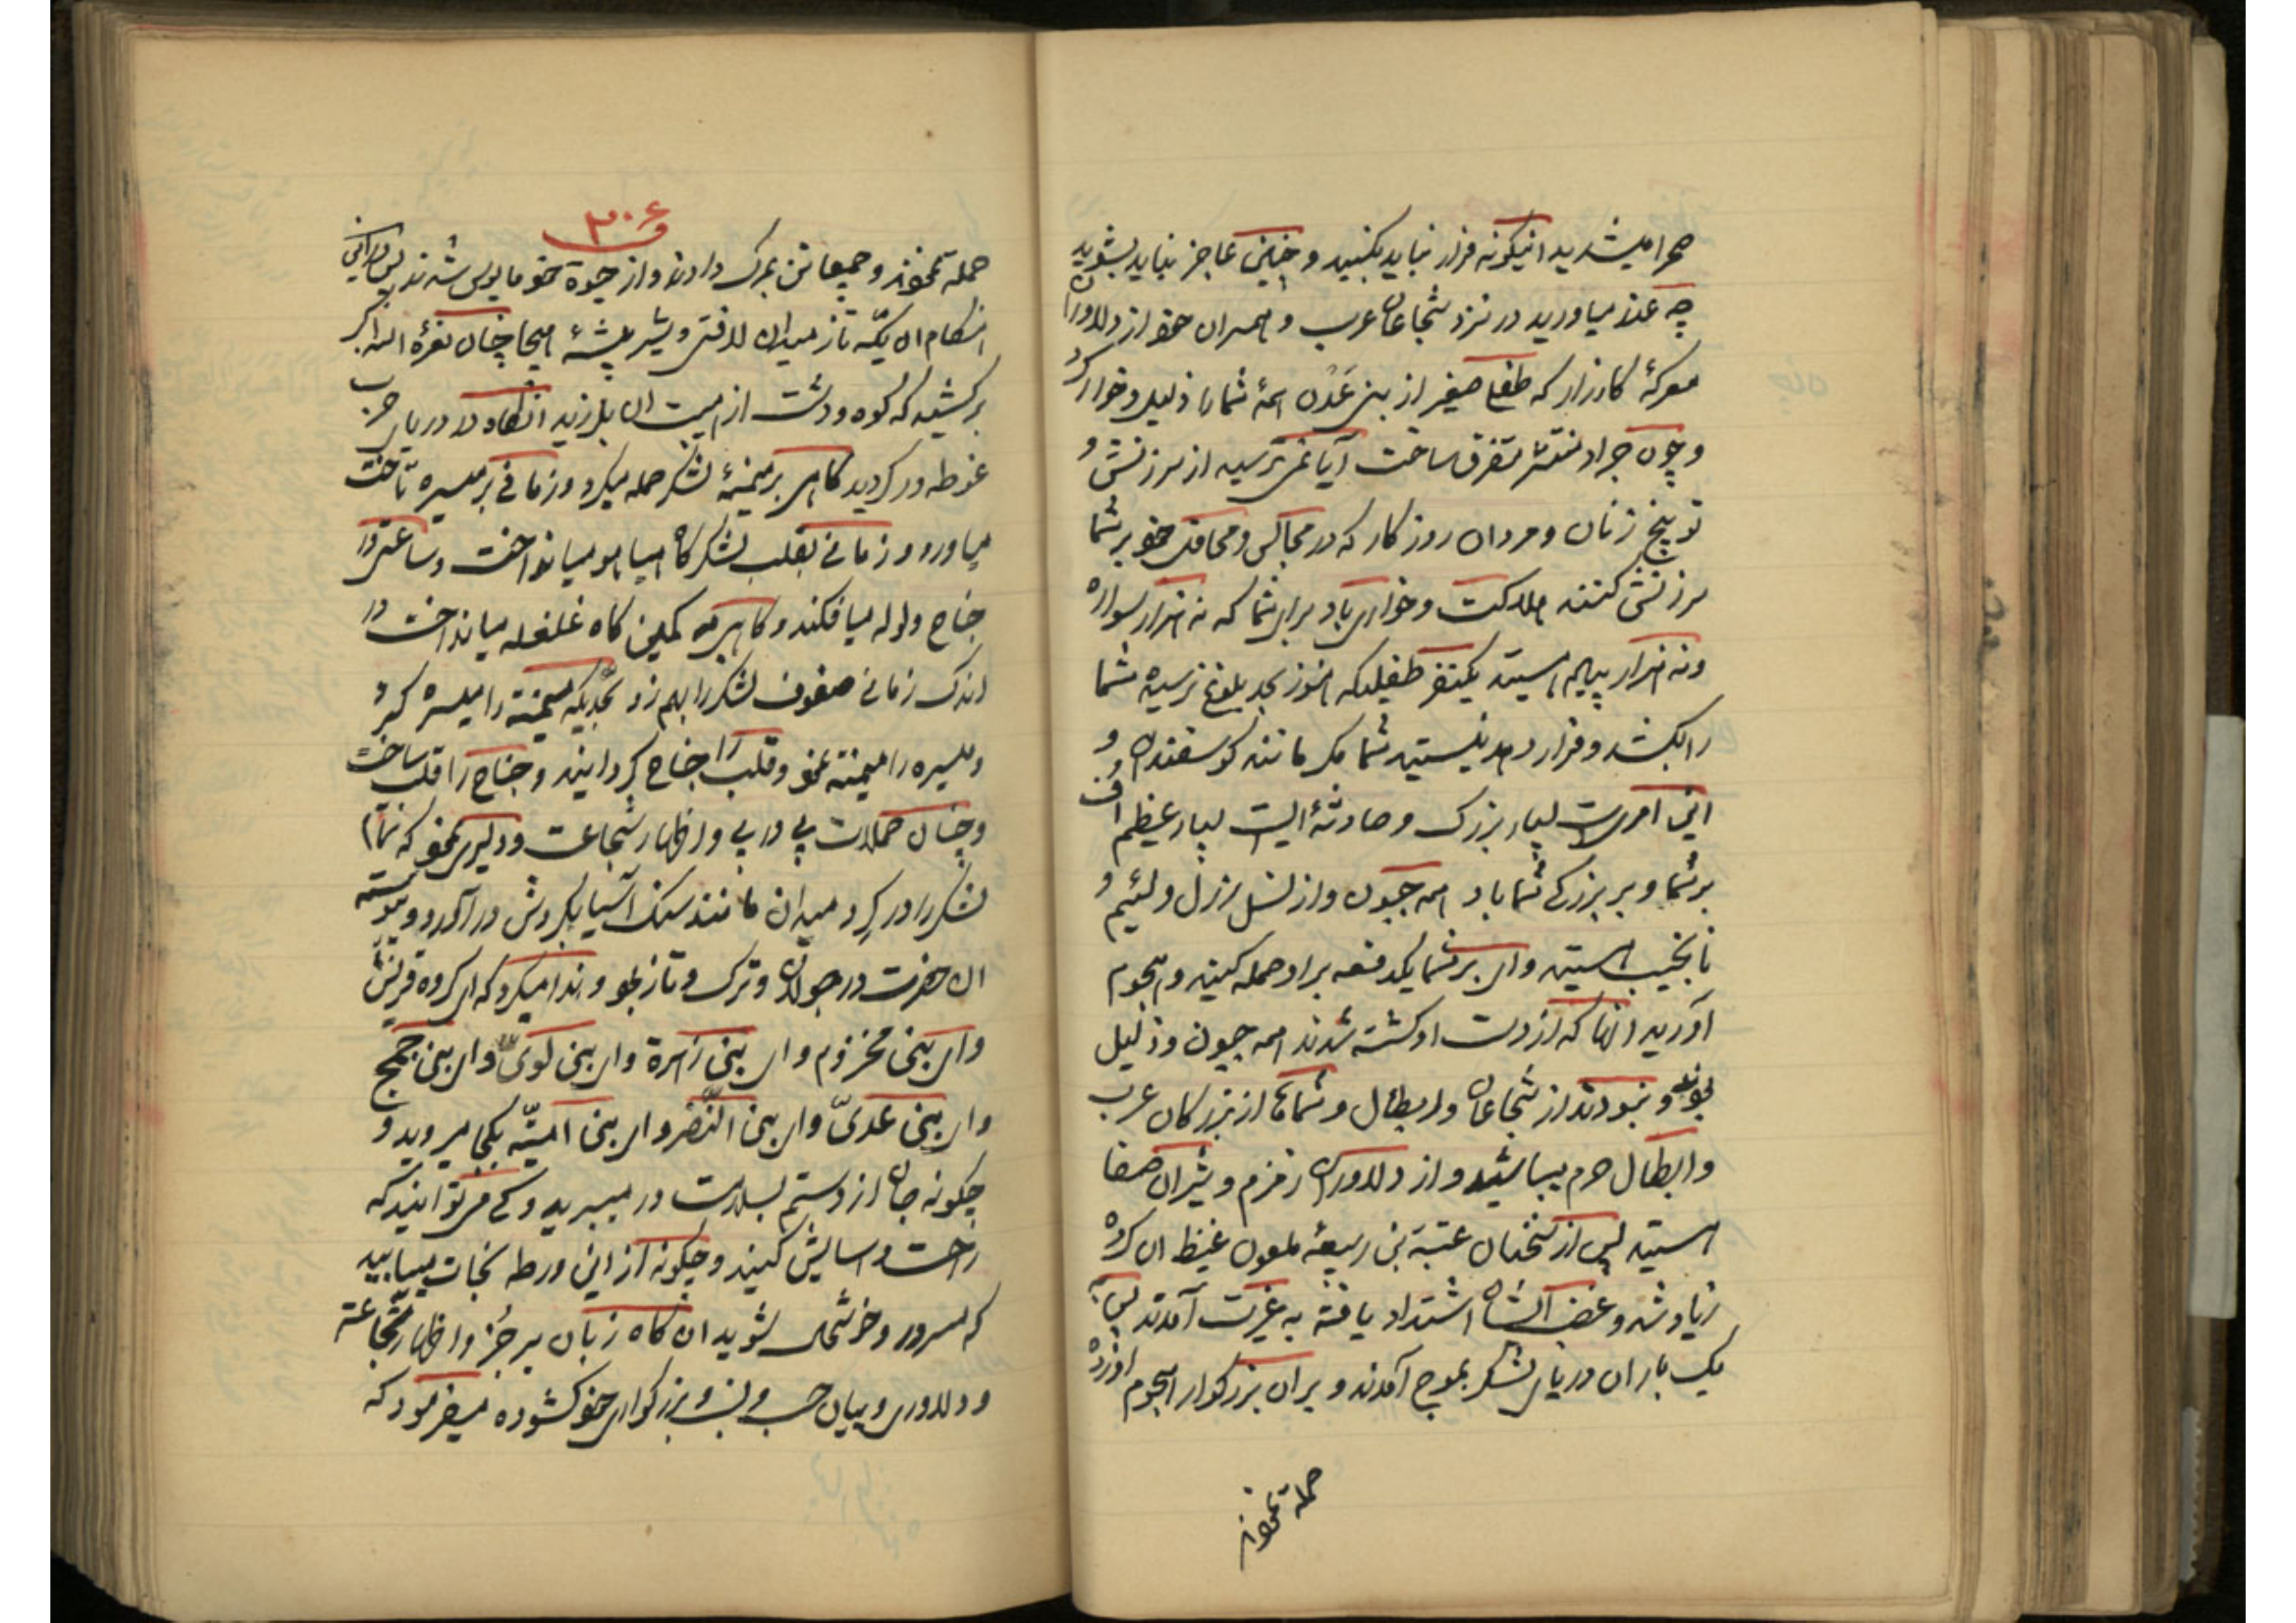 صحرا میشدید اینگونه فرار نباید بکنید و چنین عاجز نباید بشوید
چه عذر میاورید در نزد شجاعان عرب و همسران خود از دلاوران
معرکهٔ کارزار که طفل صغیر از بنی عَدُن همهٔ شما را ذلیل و خوار کرد
و چون جراد منتشر متفرق ساخت آیا نمی ترسید از سرزنش و
توبیخ زنان و مردان روزکار که در مجالس و محافل خود بر شما
سرزنش کنند هلاکت و خواری باد برای شما که نه هزار سواره
و نه هزار پیاده هستید یکنفر طفلیکه هنوز بحد بلوغ نرسیده شما
را بکشد و فرار دهد نیستید شما مکر مانند کوسفندان و
این امریست بسیار بزرک و حادثهٔ ایست بسیار عظیم اف
بر شما و بر بزرکی شما باد همه جبون و از نسل رزل و لئیم و
نانجیب هستید وای بر شما یکدفعه بر او حمله کنید و هجوم
آورید انها که از دست او کشته شدند همه جبون و ذلیل
بودند و نبودند از شجاعان و ابطال و شماها از بزرکان عرب
و ابطال حرم میباشید و از دلاوران زمزم و شیران صفا
هستید پس از سخنان عتبة بن ربیعهٔ ملعون غیظ ان کروه
زیاد شد و غضب ایشان اشتداد یافته به غیرت آمدند پس به
یک بار ان دریای لشکر بموج آمدند و بر ان بزرکوار هجوم اورده
حمله نمودند
۳۰۶
حمله نمودند و جمیعا تن بمرک دادند و از حیوة خود مایوس شدند پس در این
هنکام ان یکّه تاز میدان لافتی و شیر بیشهٔ هیجا چنان نعرهٔ الله اکبر
برکشید که کوه و دشت از هیبت ان بلرزید انکاه در دریای حرب
غوطه ور کردید کاهی بر میمنهٔ لشکر حمله میکرد و زمانی بر میسره تاخت
میاورد و زمانی بقلب لشکرکاه هیاهو میانداخت و ساعتی در
جناح ولوله میافکند و کاهی در کمین کاه غلغله میانداخت در
اندک زمانی صفوف لشکر را بهم زد بحدیکه میمنه را میسره کرد
و میسره را میمنه نمود و قلب را جناح کردانید و جناح را قلب ساخت
و چنان حملات پی در پی و اظهار شجاعت و دلیری نمود که تمام
لشکر را در کرد میدان مانند سنک آسیا بکردش در آورد و پیوسته
ان حضرت در جولان و ترک و تاز بود و ندا میکرد که ای کروه قریش
و ای بنی مخزوم و ای بنی زهرة و ای بنی لوی و ای بنی جمح
و ای بنی عدیّ و ای بنی النّضر و ای بنی امیّه بکجا میروید و
چکونه جان از دستم بسلامت در میبرید و کی می توانید که
راحت و اسایش کنید و چکونه از این ورطه نجات مییابید
که مسرور و خوشحال شوید ان کاه زبان برجز و اظهار شجاعة
و دلاوری و بیان حسب و نسب و بزرکواری خود کشوده میفرمود که